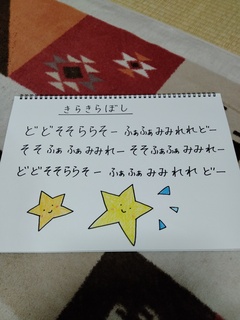 きらきらぼし
どどそそららそー ふぁふぁみみれれどー
そそふぁふぁみみれー そそふぁふぁみみれー
どどそそららそー ふぁふぁみみれれどー